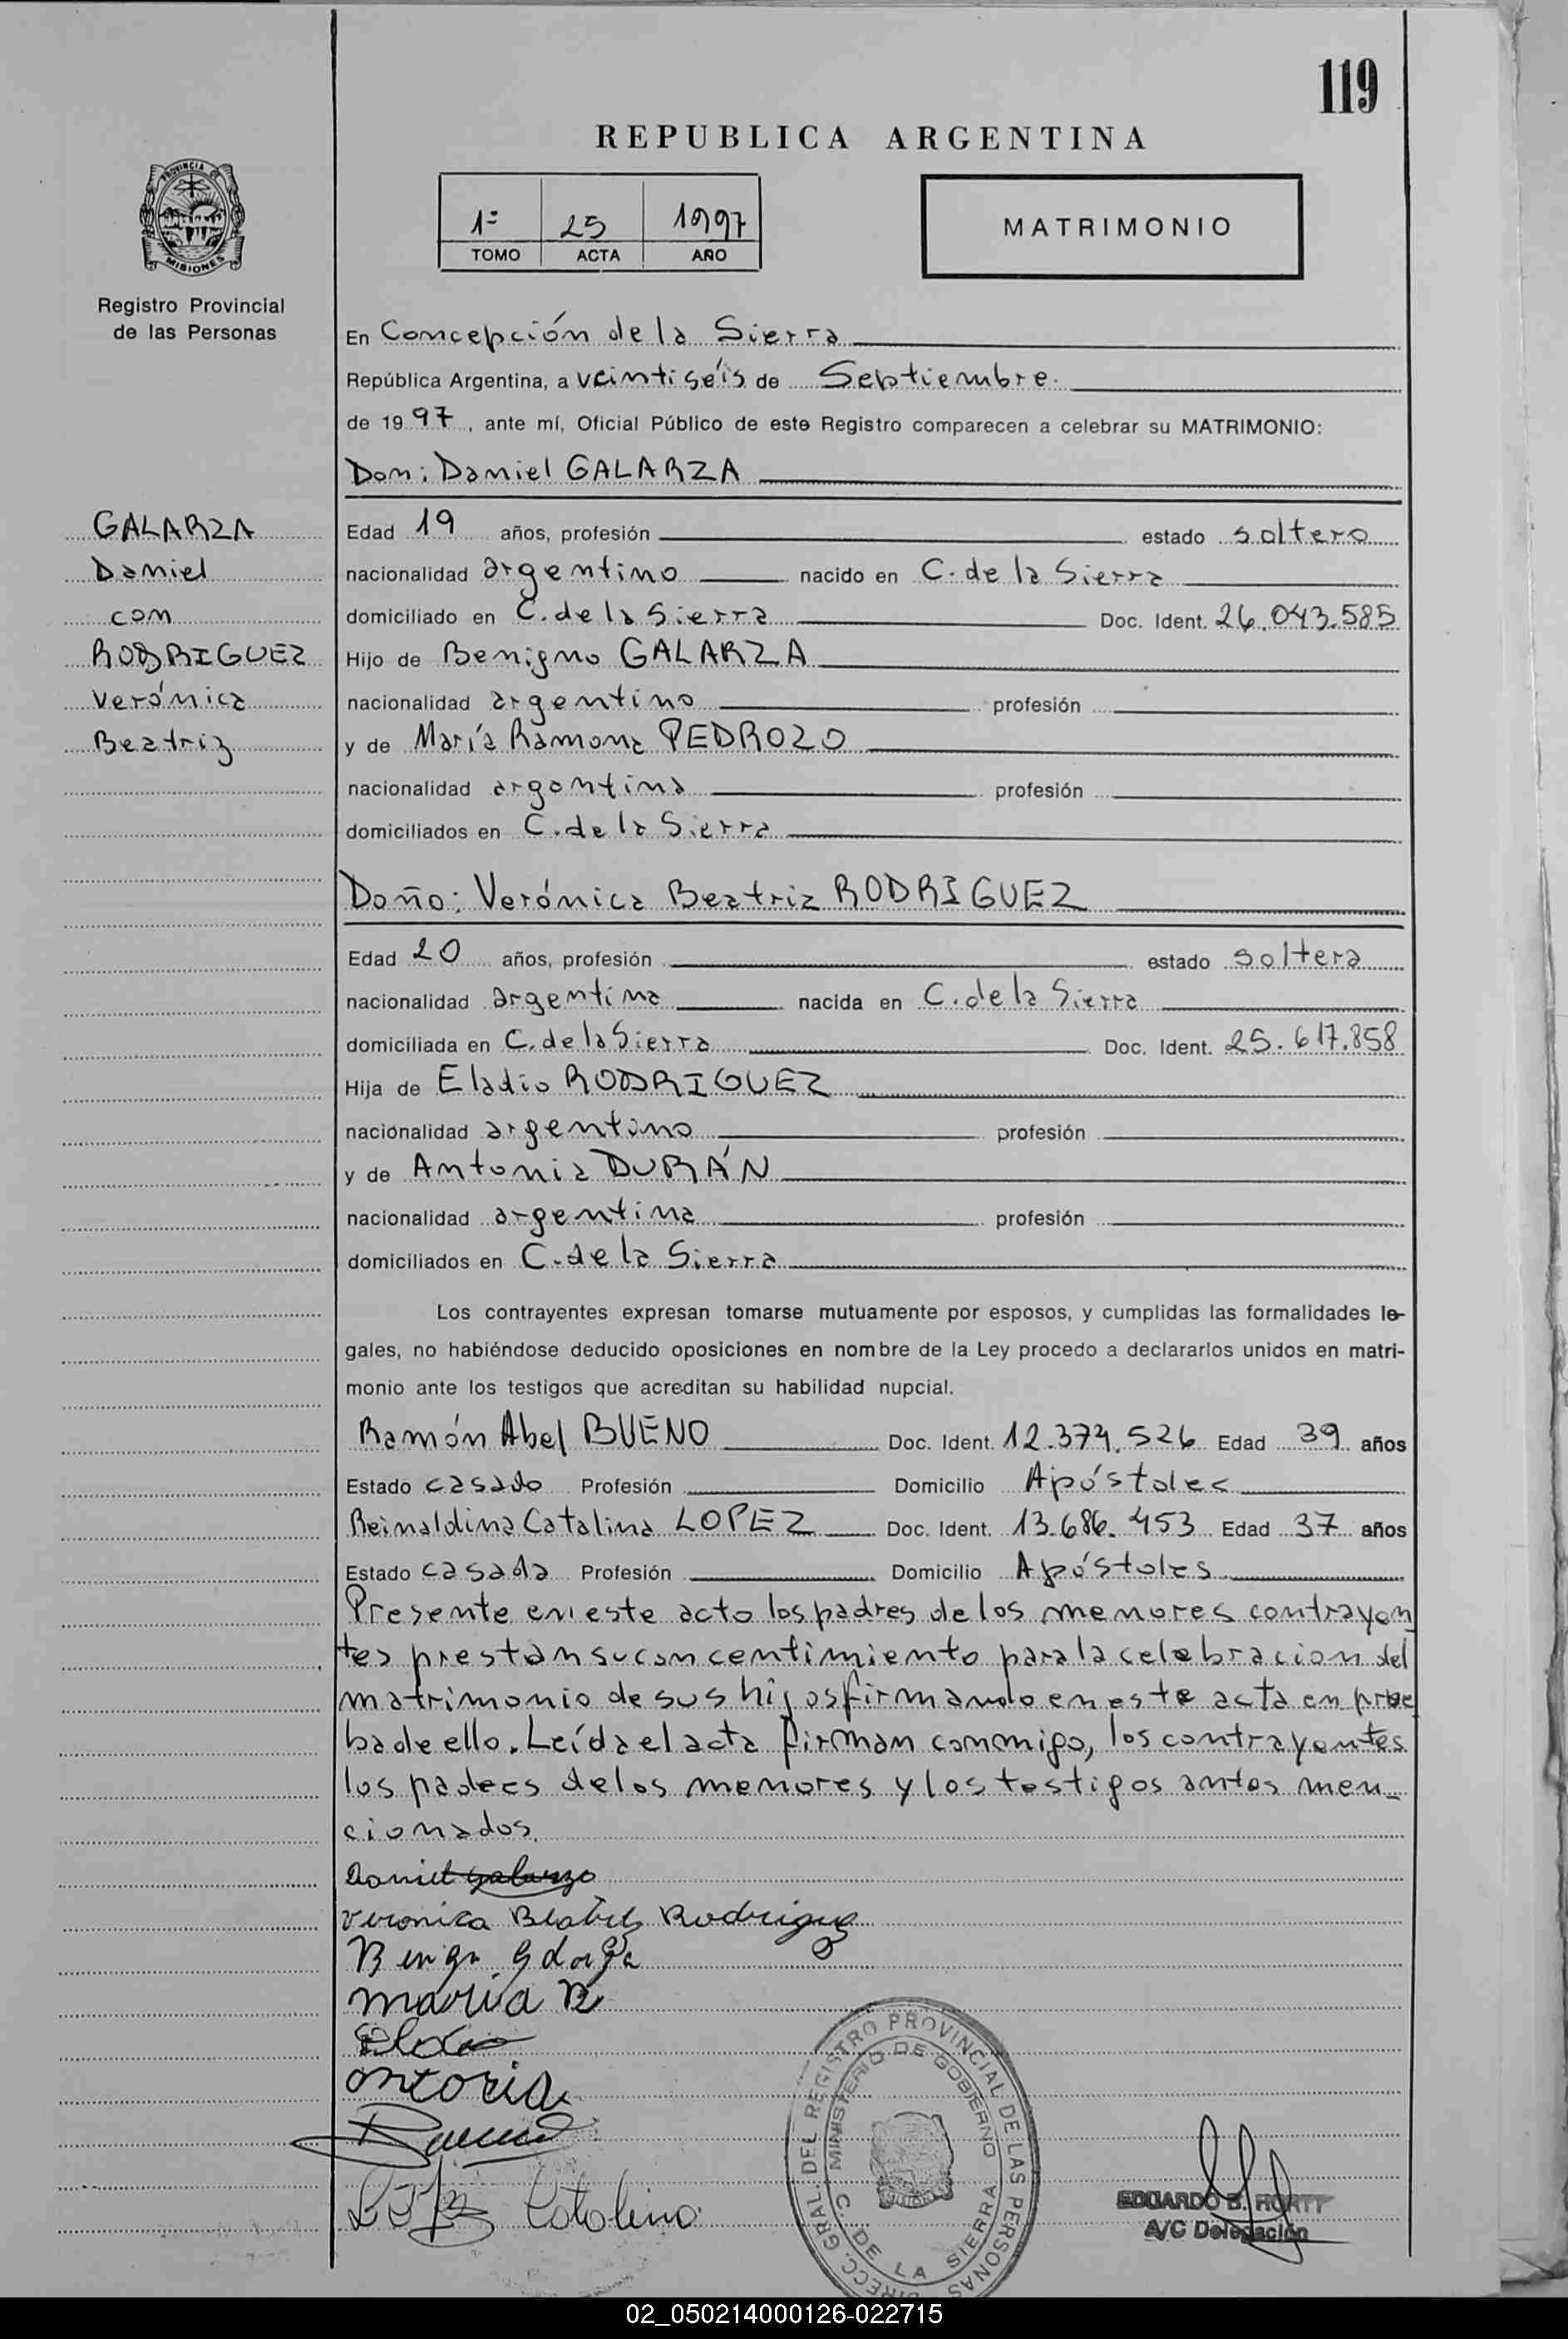 119
REPUBLICA ARGENTINA
PROVINCIA DE
MISIONES
Registro Provincial
de las Personas
1º 25 1997
TOMO ACTA AÑO
MATRIMONIO
En Concepción de la Sierra
República Argentina, a veintiséis de Septiembre.
de 1997, ante mí, Oficial Público de este Registro comparecen a celebrar su MATRIMONIO:
Don: Daniel GALARZA
GALARZA
Daniel
con
RODRIGUEZ
Verónica
Beatriz
Edad 19 años, profesión estado soltero
nacionalidad argentino nacido en C. de la Sierra
domiciliado en C. de la Sierra Doc. Ident. 26.043.585
Hijo de Benigno GALARZA
nacionalidad argentino profesión
y de María Ramona PEDROZO
nacionalidad argentina profesión
domiciliados en C. de la Sierra
Doña: Verónica Beatriz RODRIGUEZ
Edad 20 años, profesión estado soltera
nacionalidad argentina nacida en C. de la Sierra
domiciliada en C. de la Sierra Doc. Ident. 25.617.858
Hija de Eladio RODRIGUEZ
nacionalidad argentino profesión
y de Antonia DURÁN
nacionalidad argentina profesión
domiciliados en C. de la Sierra
Los contrayentes expresan tomarse mutuamente por esposos, y cumplidas las formalidades le-
gales, no habiéndose deducido oposiciones en nombre de la Ley procedo a declararlos unidos en matri-
monio ante los testigos que acreditan su habilidad nupcial.
Ramón Abel BUENO Doc. Ident. 12.374.526 Edad 39 años
Estado casado Profesión Domicilio Apóstoles
Reinaldina Catalina LOPEZ Doc. Ident. 13.686.453 Edad 37 años
Estado casada Profesión Domicilio Apóstoles
Presente en este acto los padres de los menores contrayen
tes prestan su concentimiento para la celebracion del
matrimonio de sus hijos firmando en este acta en prue
ba de ello. Leída el acta firman conmigo, los contrayentes
los padres de los menores y los testigos antes men-
cionados.
Daniel Galarza
Veronica Beatriz Rodriguez
maria R
Eladio
antonia
Bueno
Catalina
DIRECC. GRAL. DEL REGISTRO PROVINCIAL DE LAS PERSONAS
MINISTERIO DE GOBIERNO
C. DE LA SIERRA
EDUARDO
A/C Delegación
02_050214000126-022715